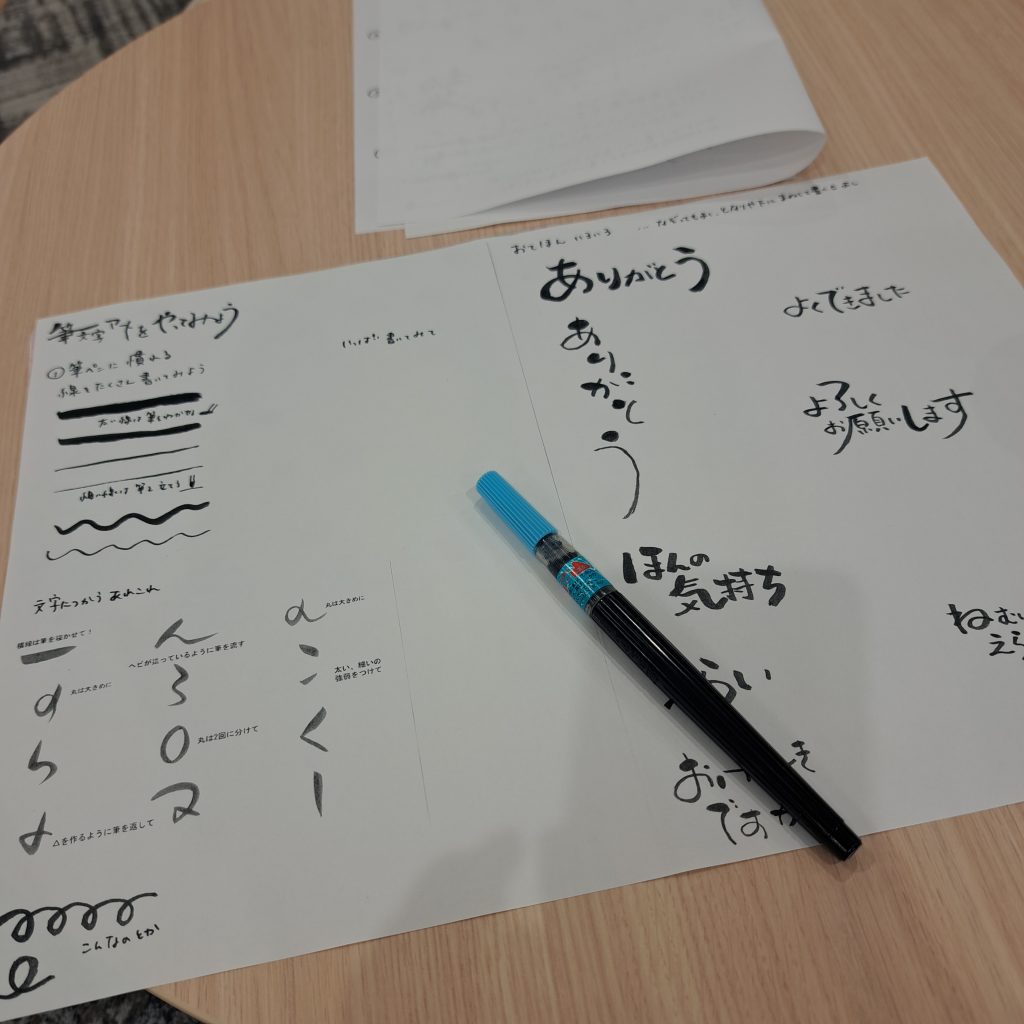 筆文字アートをやってみよう
①筆ペンに慣れる
線をたくさん書いてみよう
太い線は筆をねかす
細い線は筆を立てる
いっぱい書いてみて
文字につかう あれこれ
横線は筆を寝かせて！
ヘビが這っているように筆を流す
丸は大きめに
丸は大きめに
太い、細いの
強弱をつけて
ん
ろ
こ
ち
丸は2回に分けて
く
△を作るように筆を返して
こんなのとか
おてほん
なぞってもよし、となりや下にまねして書くもよし
ありがとう
ありがとう
よくできました
よろしく
お願いします
ほんの
気持ち
らい
おげ
ですか
ねむい
えら